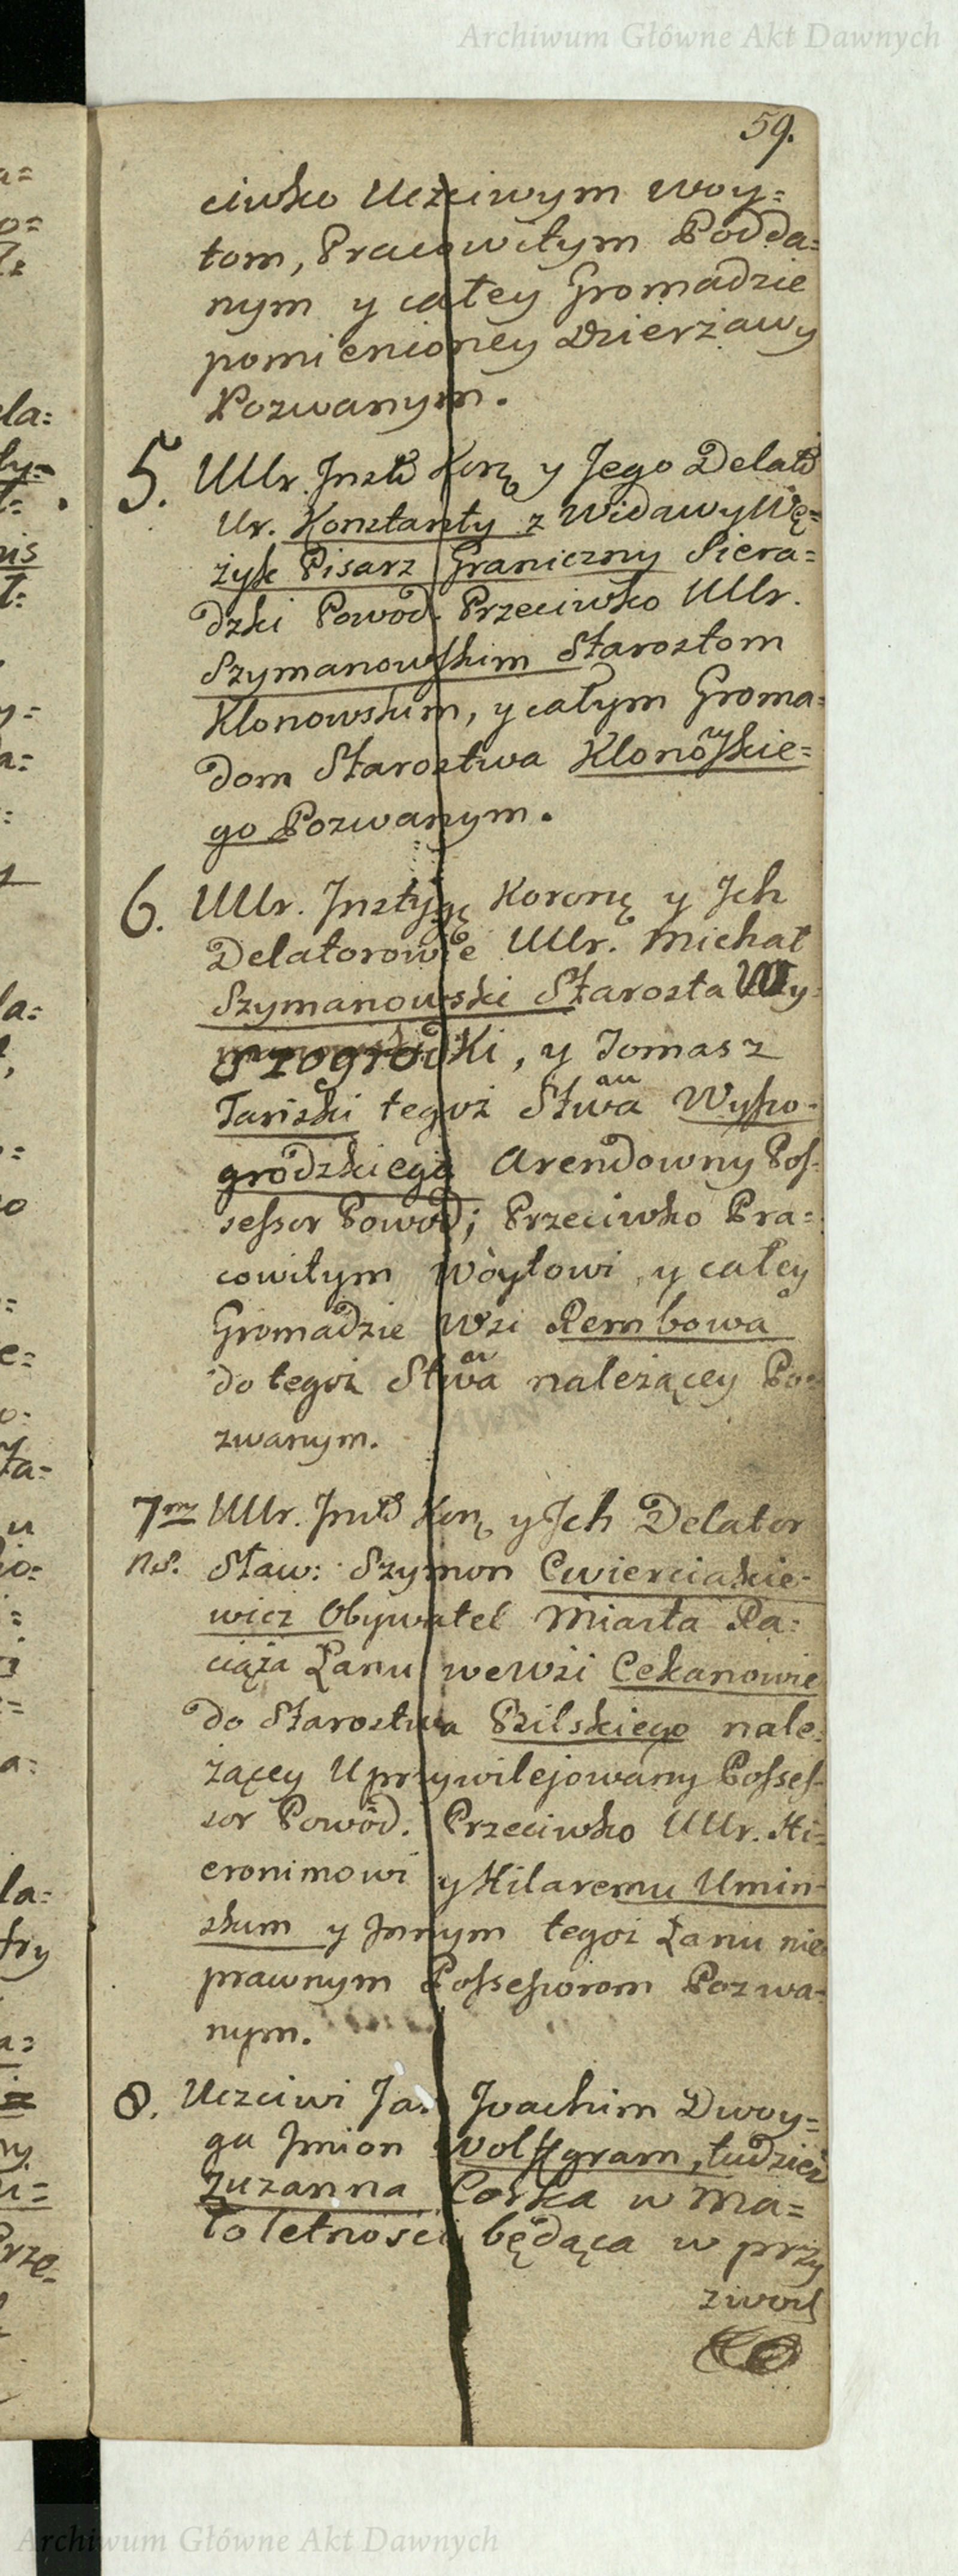 Archiwum Główne Akt Dawnych
59.
ciwko Uczciwym Woy=
tom, Pracowitym Podda=
nym y całey Gromadzie
pomienioney Dzierżawy
Pozwanym.
5. UUr. Insty Korę y Jego Delat
Ur. Konstanty z Widawy Wę=
żyk Pisarz Graniczny Siera=
dzki Powod. Przeciwko UUr.
Szymanowskim Starostom
Klonowskim, y całym Groma=
dom Starostwa Klonowskie=
go Pozwanym.
6. UUr. Instygę Koronę y Ich
Delatorowie UUr. Michał
Szymanowski Starosta Wy=
szogrodzki, y Tomasz
Tański tegoż Stwa Wyszo-
grodzkiego Arendowny Pos-
sessor Powod; Przeciwko Pra=
cowitym Woytowi, y całey
Gromadzie Wsi Rembowa
do tegoż Stwa należącey Po=
zwanym.
7my UUr. Inst Korę y Ich Delator
ns. Sław: Szymon Cwierciakie-
wicz Obywatel Miasta Ra=
ciąża Łanu we Wsi Cekanowie
do Starostwa Bilskiego nale=
żącey Uprzywilejowany Posses-
sor Powod. Przeciwko UUr. Hi=
eronimowi y Hilaremu Umin-
skum y Innym tegoż Łanu nie
prawnym Possessorom Pozwa=
nym.
8. Uczciwi Jan Joachim Dwoy=
gu Imion Wolffgram, tudzież
Zuzanna Corka w Ma=
łoletności będąca w przy
zwoi
Archiwum Główne Akt Dawnych